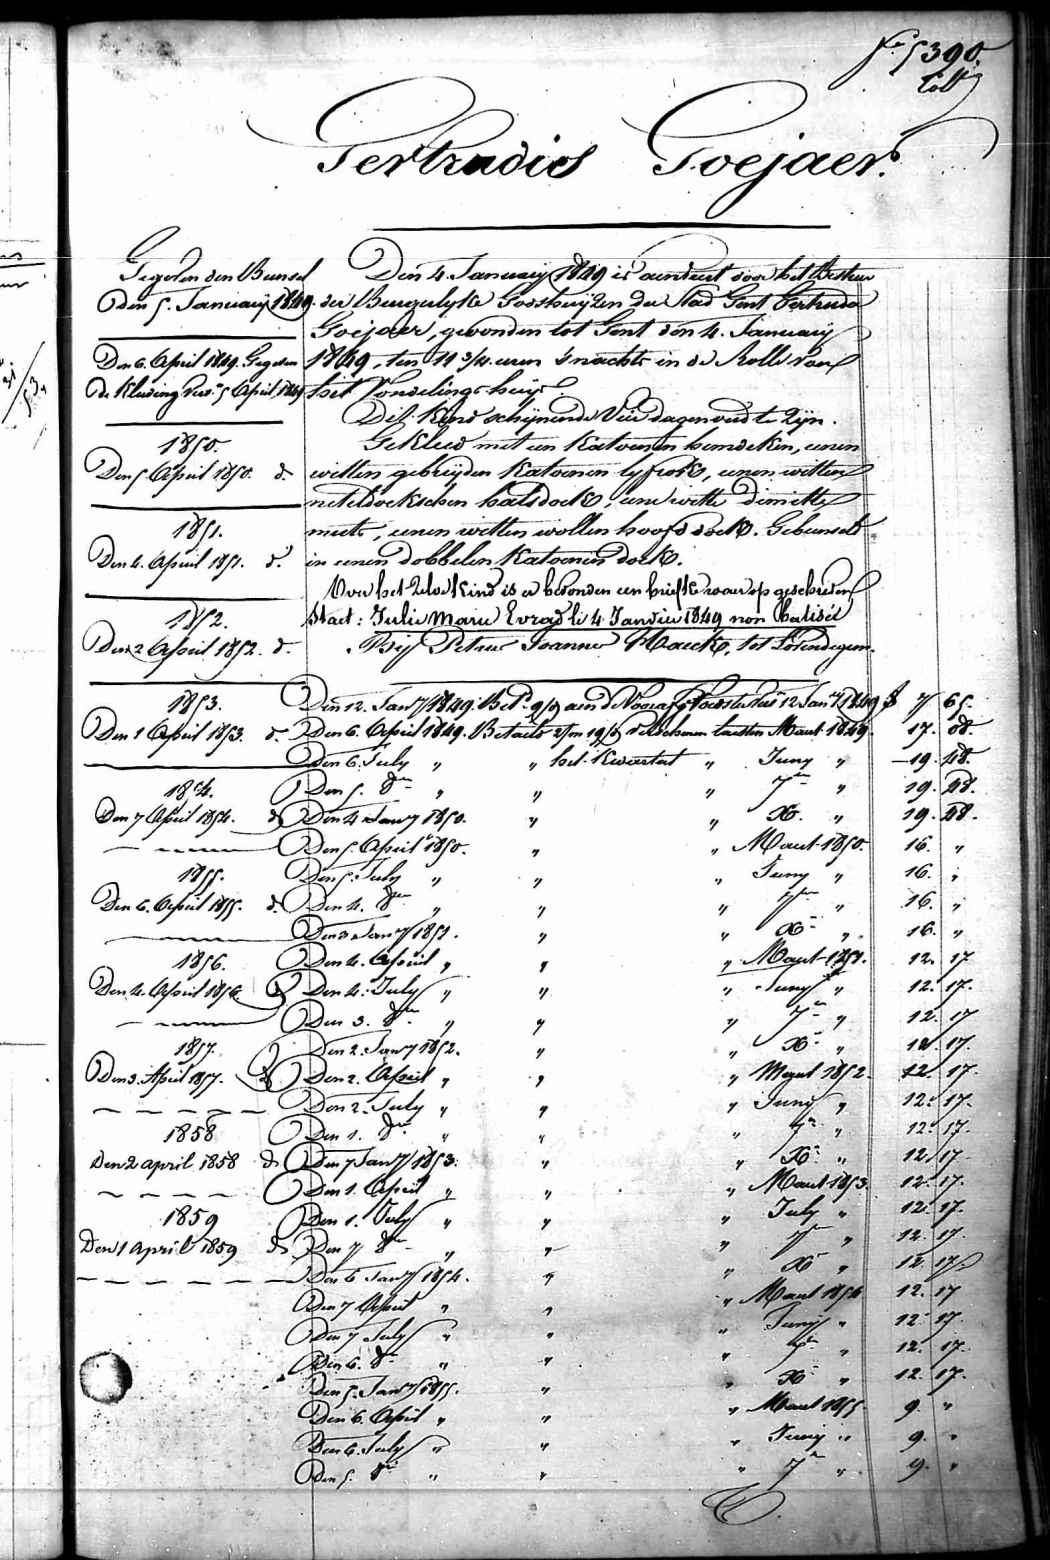 5390.
Gertrudis Goejaer.
Gegeven den Bunsel
Den 5. January 1849
Den 6. April 1849. Gegeven
de Kleeding 5 April 1849
1850.
Den 5 April 1850. d.
1851.
Den 4. April 1851. d.
1852.
Den 2 April 1852. d.
1853.
Den 1 April 1853. d.
1854.
Den 7 April 1854. d.
1855.
Den 6. April 1855. d.
1856.
Den 4. April 1856. d.
1857.
Den 3. April 1857. d.
1858
Den 2 april 1858 d.
1859
Den 1 april 1859 d.
Den 4. January 1849 is door het Bestuur
der Burgerlyke Godshuyzen der Stad Gent Gertrudis
Goejaer, gevonden tot Gent den 4. January
1849, ten 11 3/4 uren 's nachts in de Rolle van
het Vondelingshuys.
Dit Kind schynende Vier dagen oud te Zyn.
Gekleed met een Katoenen hemdeken, eenen
witten gebreyden Katoenen lyfrok, eenen witten
neteldoekschen halsdoek, eene witte dimitte
muts, eenen witten wollen hoofddoek. Gebunseld
in eenen dobbelen Katoenen doek.
Over het Zelve Kind is er bevonden een briefke waer op geschreven
Staet: Julie Marie Evrad le 4 Janvier 1849 non Batisée
Bij Petrus Joannes Maeck, tot Lovendegem.
Den 12. Jany 1849. 12 Jany 1849 7 65.
Den 6. April 1849. Betaeld Maart 1849. 17. 08.
Den 6. July " " het Kwartaal " Juny " 19. 48.
Den 5. 8re " " " 7re " 19. 48.
Den 4 Jany 1850. " " Xr. " 19. 48.
Den 5. April 1850. " " Maart 1850. 16. "
Den 5. July " " " Juny " 16. "
Den 4. 8re " " " 7re " 16. "
Den 3 Jany 1851. " " Xr " 16. "
Den 4. April " " " Maart 1851. 12. 17
Den 4. July " " " Juny " 12. 17.
Den 3. 8re " " " 7re " 12. 17
Den 2. Jany 1852. " " Xr " 12. 17.
Den 2. April " " " Maart 1852. 12. 17.
Den 2. July " " " Juny " 12. 17.
Den 1. 8re " " " 7re " 12. 17.
Den 7 Jany 1853. " " Xr " 12. 17.
Den 1. April " " " Maart 1853. 12. 17.
Den 1. July " " " July " 12. 17.
Den 7 8re " " " 7re " 12. 17.
Den 6 Jany 1854. " " Xr " 12. 17.
Den 7 April " " " Maart 1854 12. 17
Den 7 July " " " Juny " 12. 17.
Den 6. 8re " " " 7re " 12. 17.
Den 5. Jany 1855. " " Xr " 12. 17.
Den 6. April " " " Maart 1855 9. "
Den 6. July " " " Juny " 9. "
Den 5. 8re " " " 7re " 9. "